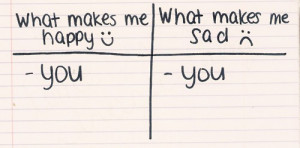 What makes me happy
What makes me sad
- you
- you